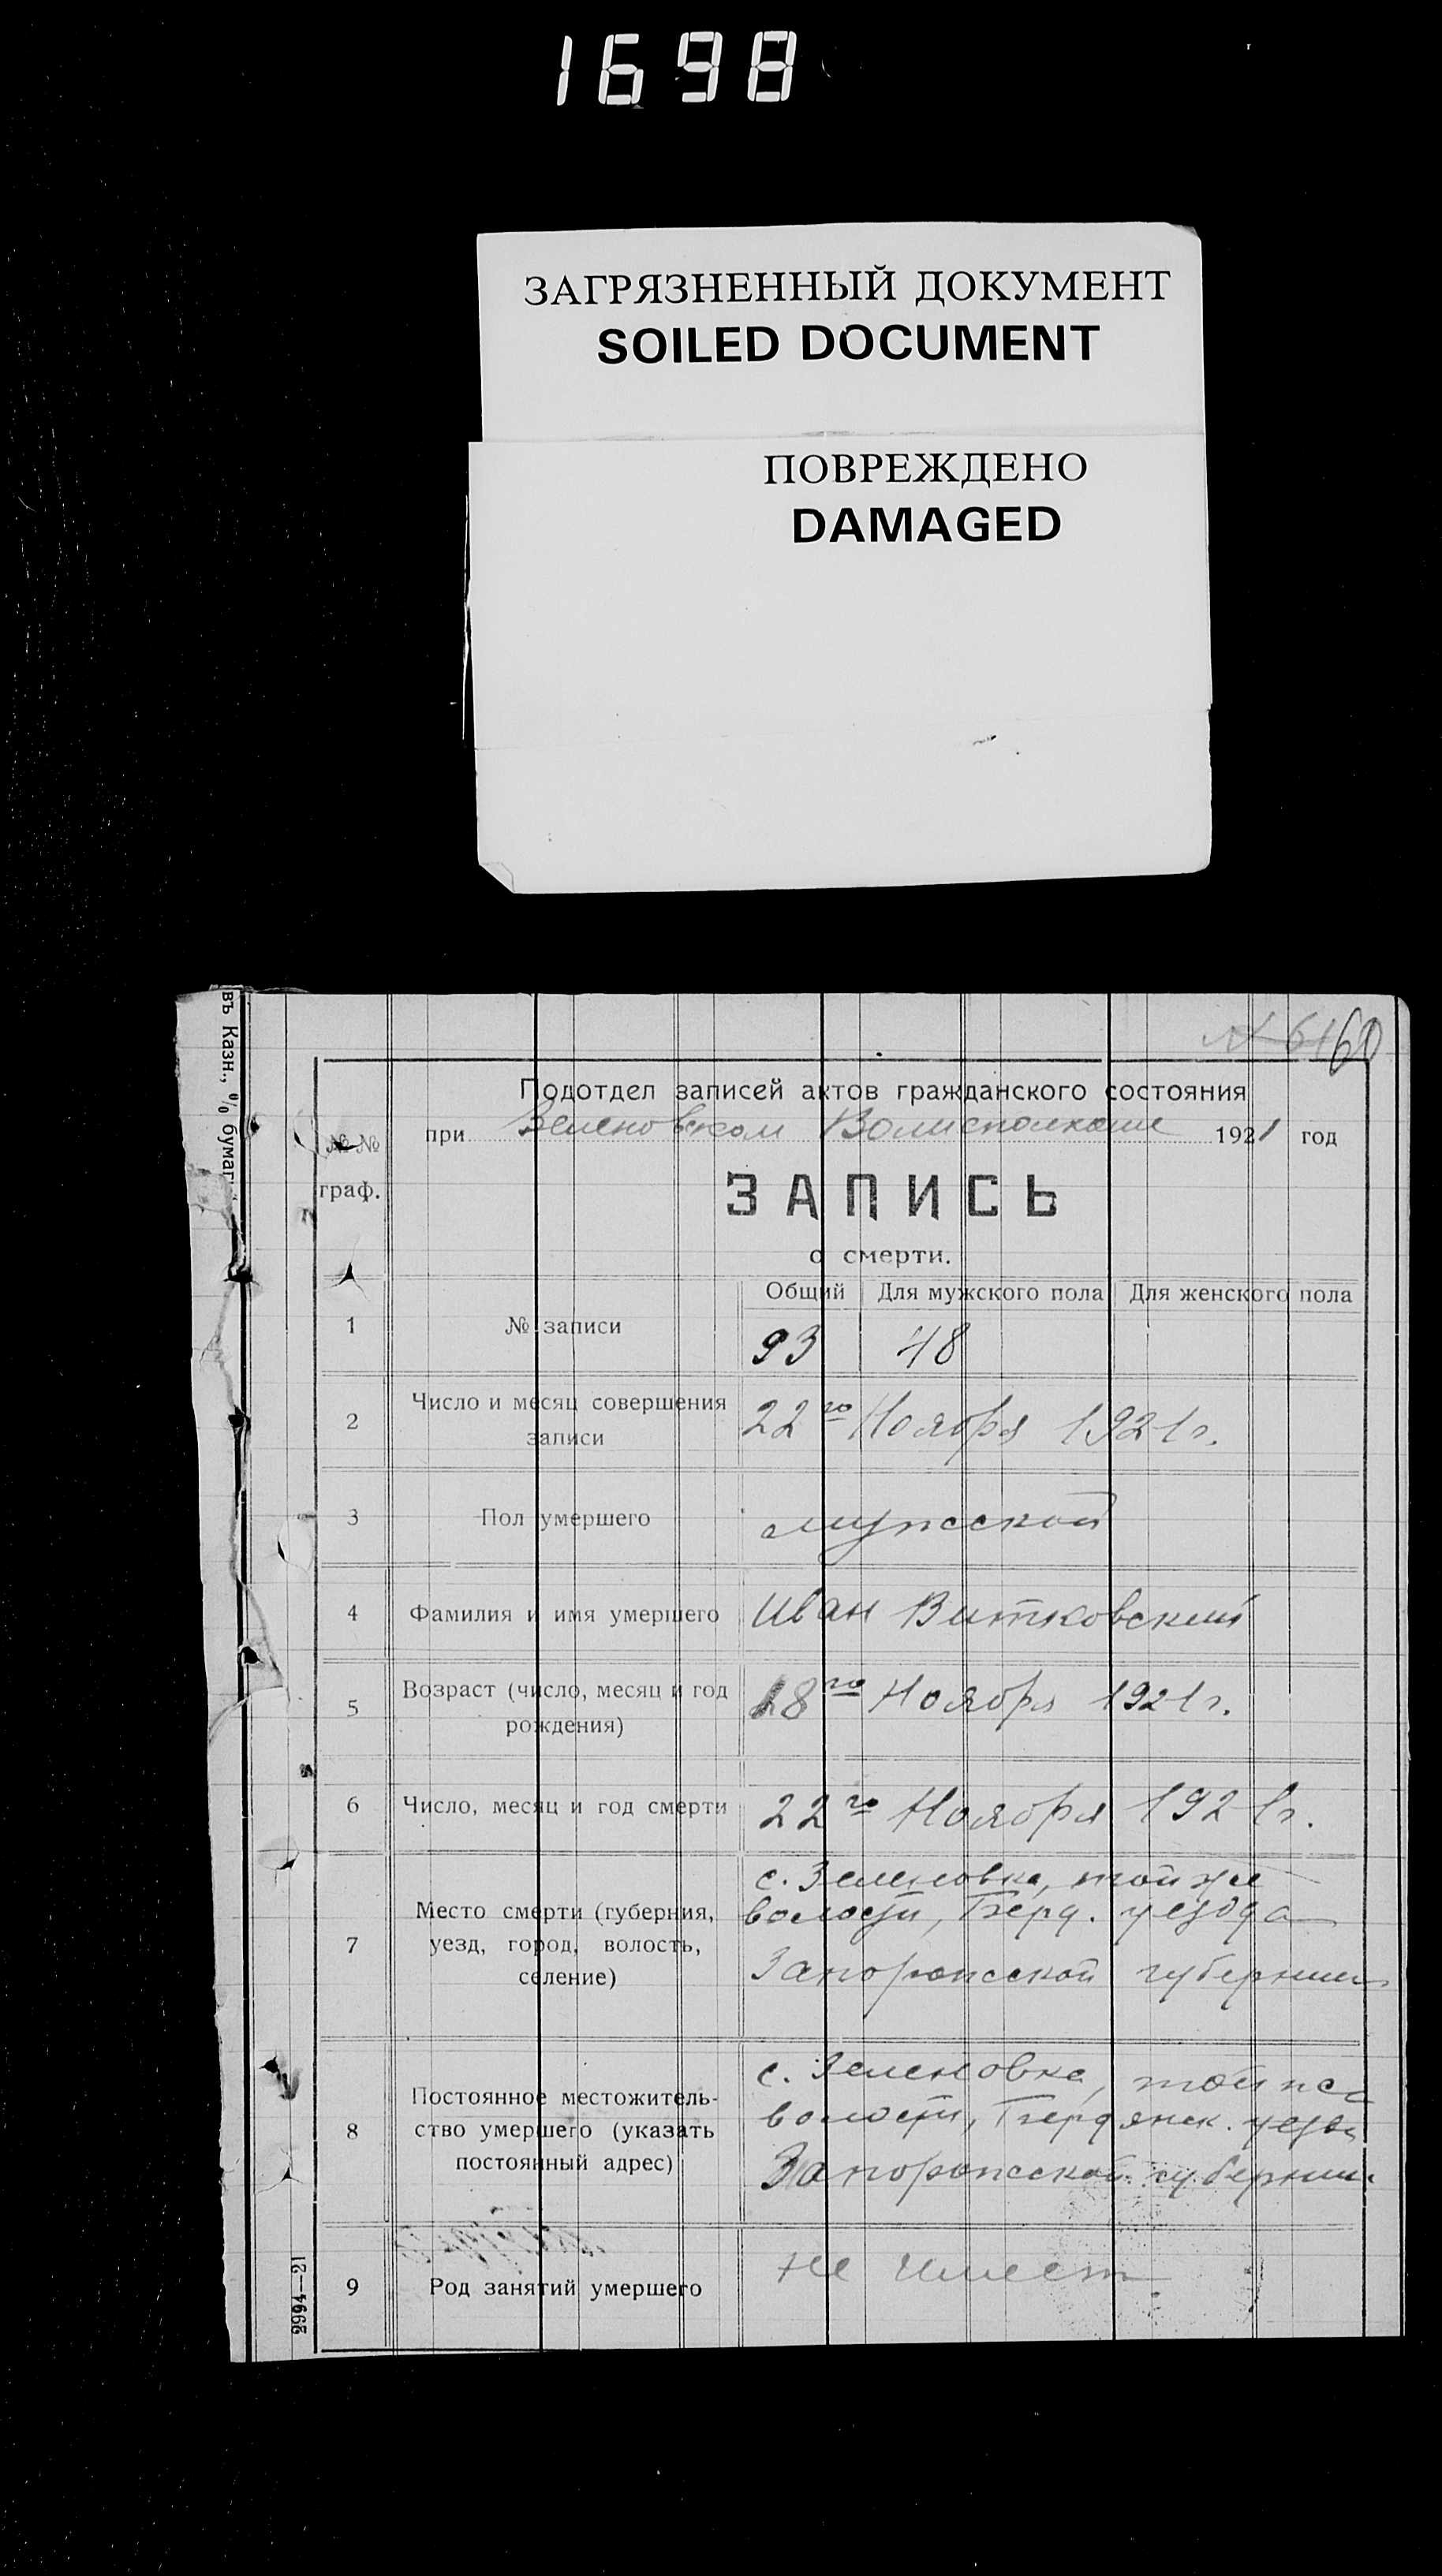 1698
ЗАГРЯЗНЕННЫЙ ДОКУМЕНТ
SOILED DOCUMENT
ПОВРЕЖДЕНО
DAMAGED
въ Казн., % бумаг
60
Подотдел записей актов гражданского состояния
при Зеленовском Волисполкоме 1921 год
№№
граф.
ЗАПИСЬ
о смерти.
Общий Для мужского пола Для женского пола
1 № записи 93 48
2 Число и месяц совершения записи 22го Ноября 1921 г.
3 Пол умершего мужской
4 Фамилия и имя умершего Иван Витковский
5 Возраст (число, месяц и год рождения) 18го Ноября 1921 г.
6 Число, месяц и год смерти 22го Ноября 1921 г.
7 Место смерти (губерния, уезд, город, волость, селение)
с. Зеленовка, той же
волости, Берд. уезда
Запорожской губернии
8 Постоянное местожительство умершего (указать постоянный адрес)
с. Зеленовка, той же
волости, Бердянск. уезда
Запорожской губернии.
9 Род занятий умершего не имеет
2994—21